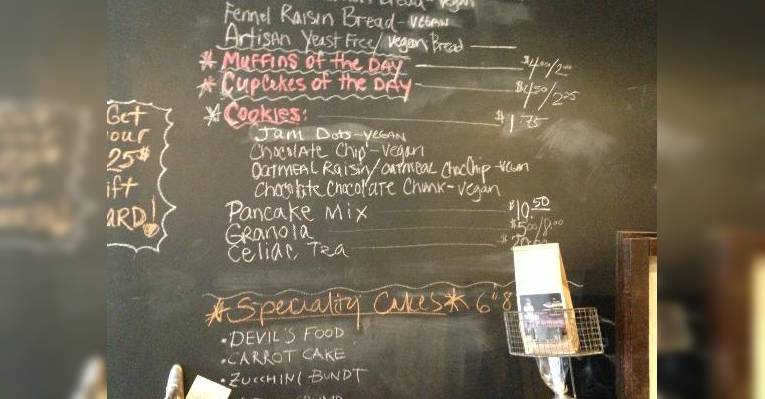 Bread - Vegan
Fennel Raisin Bread - VEGAN
Artisan Yeast Free/Vegan Bread
* Muffins of the DAY $4.00/2.00
* Cupcakes of the DAY
* Cookies: $1.75
Jam Dots - VEGAN
Chocolate Chip - Vegan
Oatmeal Raisin/oatmeal ChocChip - Vegan
Chocolate Chocolate Chunk - Vegan
Pancake Mix $10.50
Granola $5.00/8.00
Celiac Tea
Get
our
25$
ift
ARD!
*Speciality Cakes* 6" 8
• DEVIL'S FOOD
• CARROT CAKE
• ZUCCHINI BUNDT